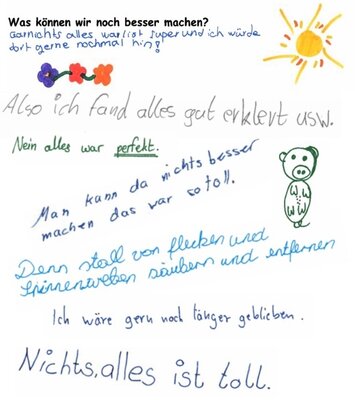 Was können wir noch besser machen?
Garnichts alles war/ist super und ich würde
dort gerne nochmal hin!
Also ich fand alles gut erklert usw.
Nein alles war perfekt.
Man kann da nichts besser
machen das war so toll.
Denn stall von flecken und
spinnenweben säubern und entfernen
Ich wäre gern noch länger geblieben.
Nichts, alles ist toll.